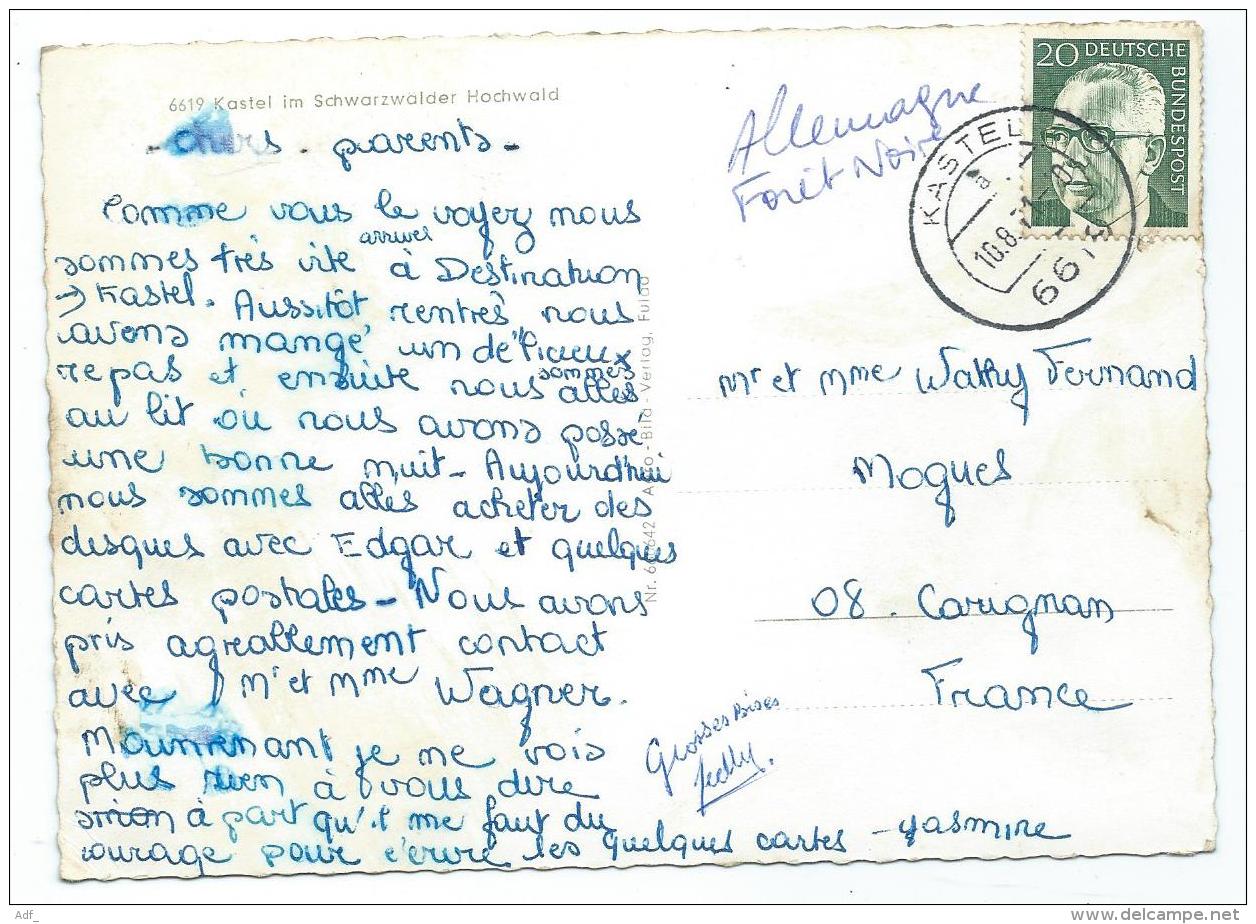 6619 Kastel im Schwarzwälder Hochwald
- Chers parents -
Comme vous le voyez nous
sommes très vite arrivés à Destination
→ Kastel. Aussitôt rentrés nous
avons mangé un délicieux
repas et ensuite nous sommes allés
au lit où nous avons passé
une bonne nuit - Aujourd'hui
nous sommes allés acheter des
disques avec Edgar et quelques
cartes postales - Nous avons
pris agréablement contact
avec Mr et Mme Wagner.
Maintenant je ne vois
plus rien à vous dire
sinon à part qu'il me faut du
courage pour écrire les quelques cartes - Yasmine
Grosses Bises
Allemagne
Forêt Noire
20 DEUTSCHE BUNDESPOST
KASTEL
10.8.71
6619
Mr et Mme Wathy Fernand
Mogues
08. Carignan
France
Bild-Verlag, Fulda
Adf_
www.delcampe.net